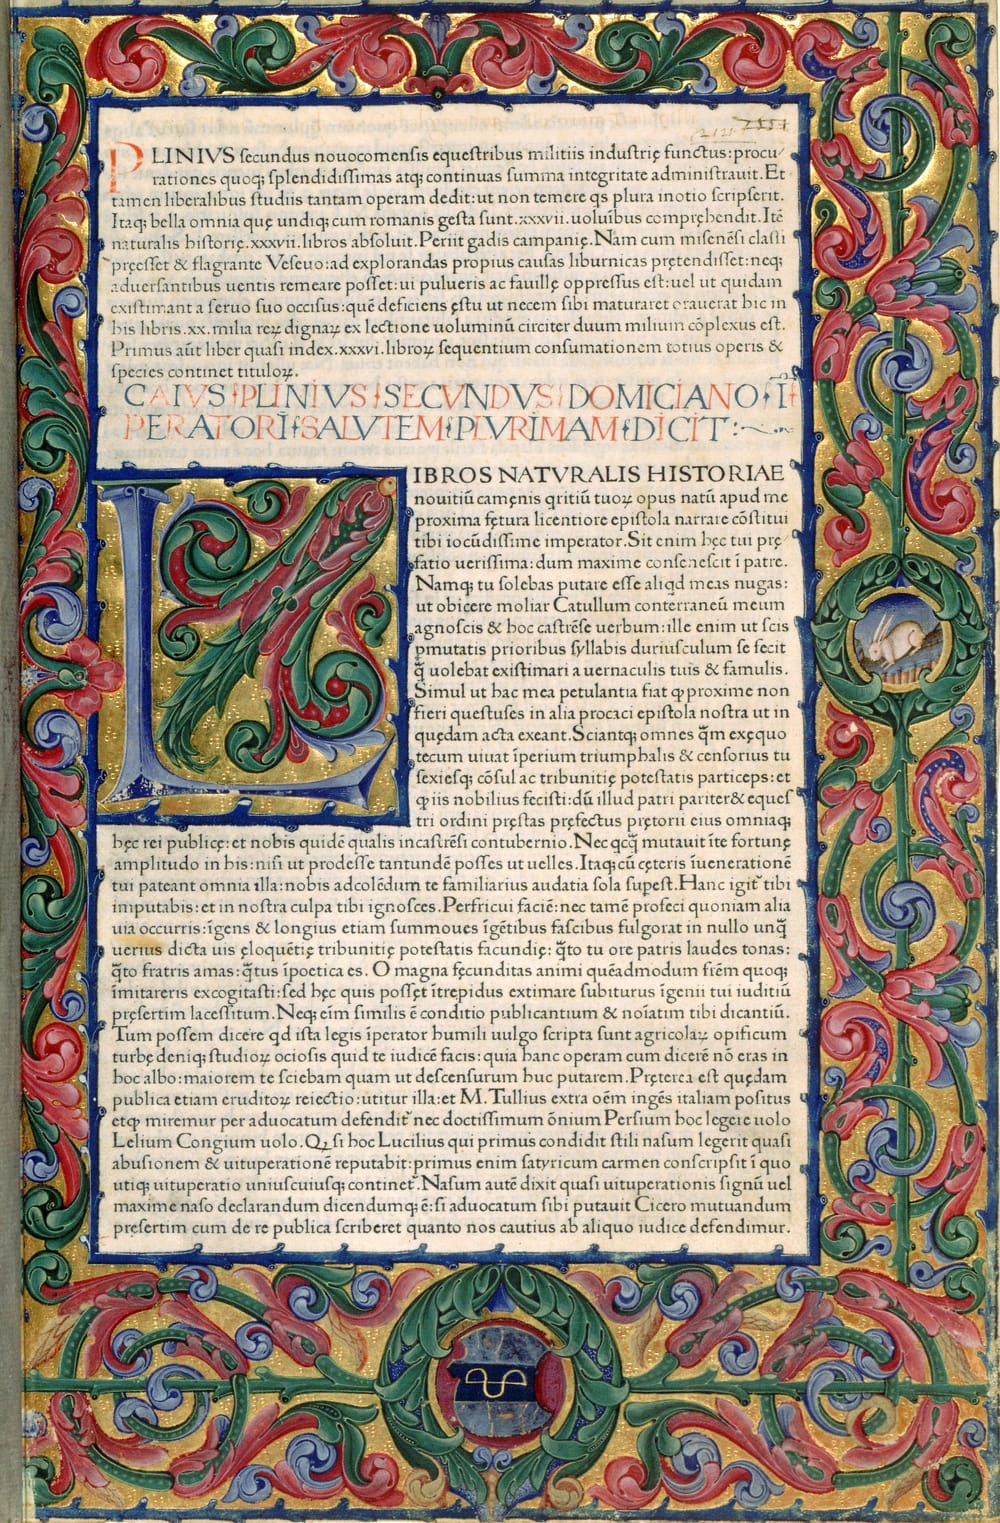 PLINIVS secundus nouocomensis equestribus militiis industrię functus: procu/
rationes quoq; splendidissimas atq; continuas summa integritate administrauit. Et
tamen liberalibus studiis tantam operam dedit: ut non temere qs plura inotio scripserit.
Itaq; bella omnia quę undiq; cum romanis gesta sunt .xxxvii. uoluībus compręhendit. Itē
naturalis historię .xxxvii. libros absoluit. Periit gadis campanię. Nam cum misenēsi classi
pręesset & flagrante Veseuo: ad explorandas propius causas liburnicas prętendisset: neq;
aduersantibus uentis remeare posset: ui pulueris ac fauillę oppressus est: uel ut quidam
existimant a seruo suo occisus: quē deficiens ęstu ut necem sibi maturaret orauerat hic in
his libris .xx. milia reꝝ dignaꝝ ex lectione uoluminū circiter duum milium cōplexus est.
Primus aūt liber quasi index .xxxvi. libroꝝ sequentium consumationem totius operis &
species continet tituloꝝ.
CAIVS PLINIVS SECVNDVS DOMICIANO Ī
PERATORI SALVTEM PLVRIMAM DICIT:
LIBROS NATVRALIS HISTORIAE
nouitiū camęnis qritiū tuoꝝ opus natū apud me
proxima fętura licentiore epistola narrare cōstitui
tibi iocūdissime imperator. Sit enim hęc tui prę/
fatio uerissima: dum maxime consenescit ī patre.
Namq; tu solebas putare esse aliqd meas nugas:
ut obicere moliar Catullum conterraneū meum
agnoscis & hoc castrēse uerbum: ille enim ut scis
pmutatis prioribus syllabis duriusculum se fecit
q̄ uolebat existimari a uernaculis tuis & famulis.
Simul ut hac mea petulantia fiat ꝙ proxime non
fieri questuses in alia procaci epistola nostra ut in
quędam acta exeant. Sciantq; omnes q̄m exęquo
tecum uiuat īperium triumphalis & censorius tu
sexiesq; cōsul ac tribunitię potestatis particeps: et
ꝙ iis nobilius fecisti: dū illud patri pariter & eques
tri ordini pręstas pręfectus prętorii eius omniaq;
hęc rei publicę: et nobis quidē qualis incastrēsi contubernio. Nec qcq̄ mutauit īte fortunę
amplitudo in his: nisi ut prodesse tantundē posses ut uelles. Itaq; cū cęteris īuenerationē
tui pateant omnia illa: nobis adcolēdum te familiarius audatia sola supest. Hanc igit᷑ tibi
imputabis: et in nostra culpa tibi ignosces. Perfricui faciē: nec tamē profeci quoniam alia
uia occurris: īgens & longius etiam summoues īgētibus fascibus fulgorat in nullo unq̄
uerius dicta uis ęloquētię tribunitię potestatis facundię: q̄to tu ore patris laudes tonas:
q̄to fratris amas: q̄tus īpoetica es. O magna fęcunditas animi quēadmodum frēm quoq;
īmitareris excogitasti: sed hęc quis possęt ītrepidus extimare subiturus īgenii tui iuditiū
pręsertim lacessitum. Neq; eīm similis ē conditio publicantium & noīatim tibi dicantiū.
Tum possem dicere qd ista legis īperator humili uulgo scripta sunt agricolaꝝ opificum
turbę deniq; studioꝝ ociosis quid te iudicē facis: quia hanc operam cum dicerē nō eras in
hoc albo: maiorem te sciebam quam ut descensurum huc putarem. Pręterea est quędam
publica etiam eruditoꝝ reiectio: utitur illa: et M. Tullius extra oēm ingēs italiam positus
etꝙ miremur per aduocatum defendit᷑ nec doctissimum ōnium Persium hoc legere uolo
Lelium Congium uolo. Q̨ si hoc Lucilius qui primus condidit stili nasum legerit quasi
abusionem & uituperationē reputabit: primus enim satyricum carmen conscripsit ī quo
utiq; uituperatio uniuscuiusq; continet᷑. Nasum autē dixit quasi uituperationis signū uel
maxime naso declarandum dicendumq; ē: si aduocatum sibi putauit Cicero mutuandum
pręsertim cum de re publica scriberet quanto nos cautius ab aliquo iudice defendimur.